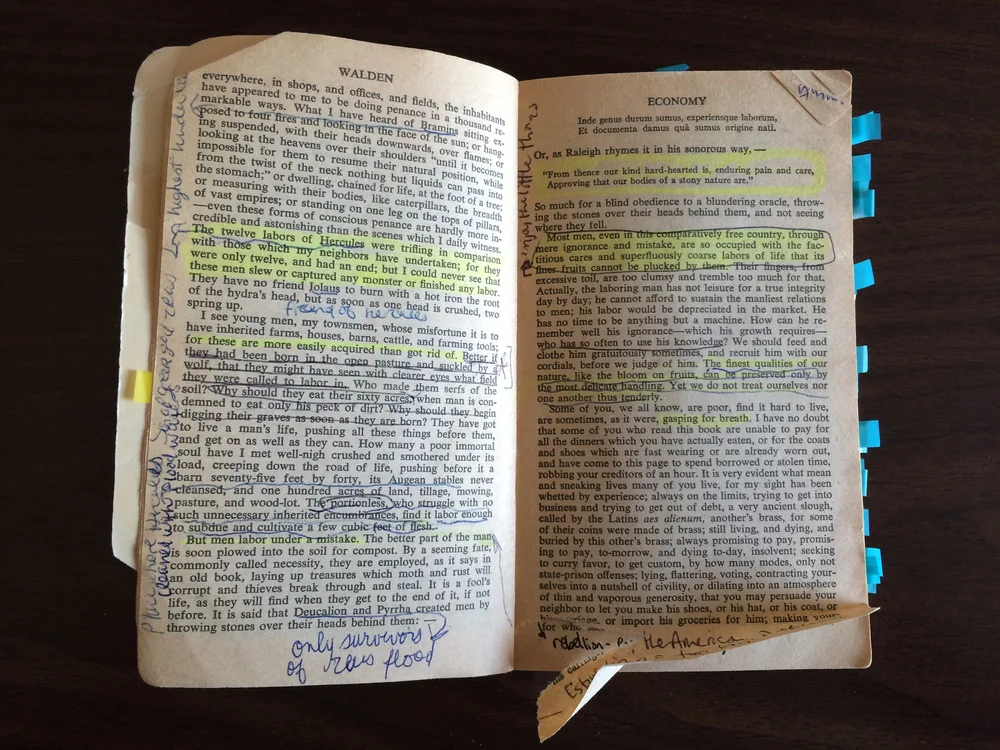 WALDEN
everywhere, in shops, and offices, and fields, the inhabitants
have appeared to me to be doing penance in a thousand re-
markable ways. What I have heard of Bramins sitting ex-
posed to four fires and looking in the face of the sun; or hang-
ing suspended, with their heads downwards, over flames; or
looking at the heavens over their shoulders "until it becomes
impossible for them to resume their natural position, while
from the twist of the neck nothing but liquids can pass into
the stomach;" or dwelling, chained for life, at the foot of a tree;
or measuring with their bodies, like caterpillars, the breadth
of vast empires; or standing on one leg on the tops of pillars,
—even these forms of conscious penance are hardly more in-
credible and astonishing than the scenes which I daily witness.
The twelve labors of Hercules were trifling in comparison
with those which my neighbors have undertaken; for they
were only twelve, and had an end; but I could never see that
these men slew or captured any monster or finished any labor.
They have no friend Iolaus to burn with a hot iron the root
of the hydra's head, but as soon as one head is crushed, two
spring up.
friend of hercules
I see young men, my townsmen, whose misfortune it is to
have inherited farms, houses, barns, cattle, and farming tools;
for these are more easily acquired than got rid of. Better if
they had been born in the open pasture and suckled by a
wolf, that they might have seen with clearer eyes what field
they were called to labor in. Who made them serfs of the
soil? Why should they eat their sixty acres, when man is con-
demned to eat only his peck of dirt? Why should they begin
digging their graves as soon as they are born? They have got
to live a man's life, pushing all these things before them,
and get on as well as they can. How many a poor immortal
soul have I met well-nigh crushed and smothered under its
load, creeping down the road of life, pushing before it a
barn seventy-five feet by forty, its Augean stables never
cleansed, and one hundred acres of land, tillage, mowing,
pasture, and wood-lot. The portionless, who struggle with no
such unnecessary inherited encumbrances, find it labor enough
to subdue and cultivate a few cubic feet of flesh.
But men labor under a mistake. The better part of the man
is soon plowed into the soil for compost. By a seeming fate,
commonly called necessity, they are employed, as it says in
an old book, laying up treasures which moth and rust will
corrupt and thieves break through and steal. It is a fool's
life, as they will find when they get to the end of it, if not
before. It is said that Deucalion and Pyrrha created men by
throwing stones over their heads behind them:—
only survivors
of zeus flood
ECONOMY
Inde genus durum sumus, experiensque laborum,
Et documenta damus quâ simus origine nati.
Or, as Raleigh rhymes it in his sonorous way,—
"From thence our kind hard-hearted is, enduring pain and care,
Approving that our bodies of a stony nature are."
So much for a blind obedience to a blundering oracle, throw-
ing the stones over their heads behind them, and not seeing
where they fell.
Most men, even in this comparatively free country, through
mere ignorance and mistake, are so occupied with the fac-
titious cares and superfluously coarse labors of life that its
finer fruits cannot be plucked by them. Their fingers, from
excessive toil, are too clumsy and tremble too much for that.
Actually, the laboring man has not leisure for a true integrity
day by day; he cannot afford to sustain the manliest relations
to men; his labour would be depreciated in the market. He
has no time to be anything but a machine. How can he re-
member well his ignorance—which his growth requires—
who has so often to use his knowledge? We should feed and
clothe him gratuitously sometimes, and recruit him with our
cordials, before we judge of him. The finest qualities of our
nature, like the bloom on fruits, can be preserved only by
the most delicate handling. Yet we do not treat ourselves nor
one another thus tenderly.
Some of you, we all know, are poor, find it hard to live,
are sometimes, as it were, gasping for breath. I have no doubt
that some of you who read this book are unable to pay for
all the dinners which you have actually eaten, or for the coats
and shoes which are fast wearing or are already worn out,
and have come to this page to spend borrowed or stolen time,
robbing your creditors of an hour. It is very evident what mean
and sneaking lives many of you live, for my sight has been
whetted by experience; always on the limits, trying to get into
business and trying to get out of debt, a very ancient slough,
called by the Latins aes alienum, another's brass, for some
of their coins were made of brass; still living, and dying, and
buried by this other's brass; always promising to pay, promis-
ing to pay, to-morrow, and dying to-day, insolvent; seeking
to curry favor, to get custom, by how many modes, only not
state-prison offenses; lying, flattering, voting, contracting your-
selves into a nutshell of civility, or dilating into an atmosphere
of thin and vaporous generosity, that you may persuade your
neighbor to let you make his shoes, or his hat, or his coat, or
or import his groceries for him; making your-
for who
enjoy the little things
rebellion
the America